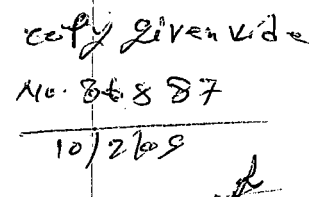 copy given vide
No. 86887
10/2/09